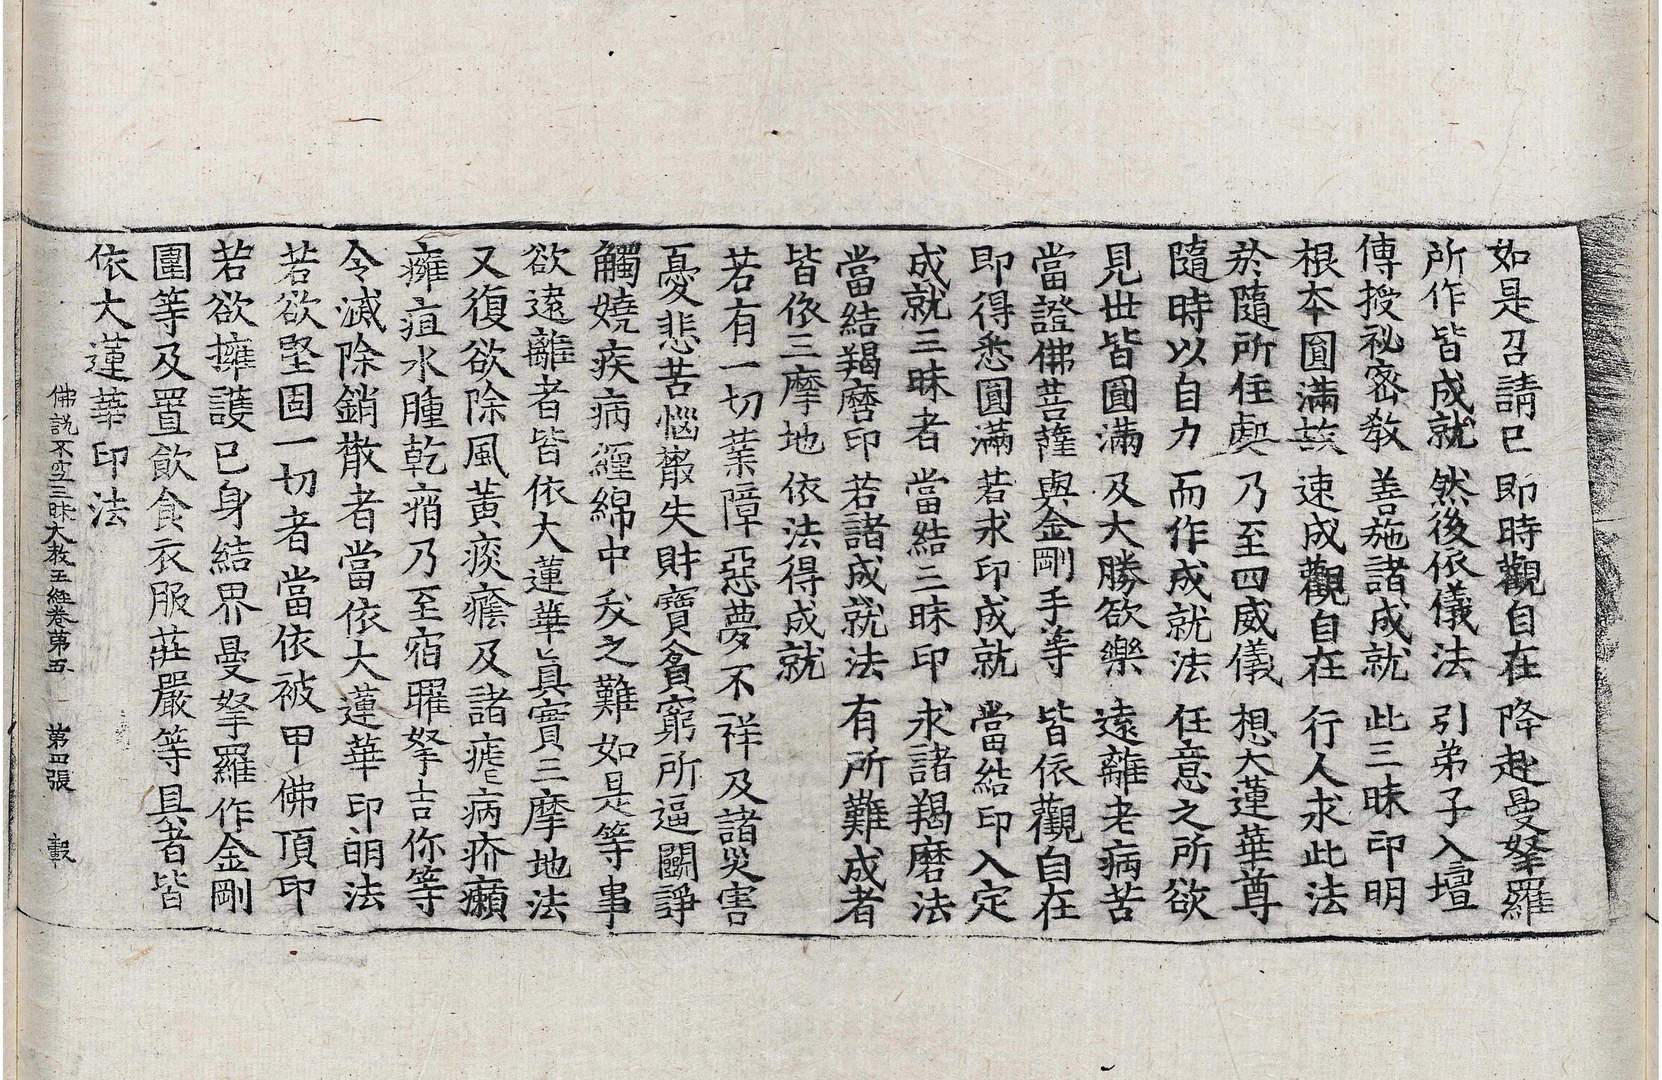 如是召請已 即時觀自在 降赴曼拏羅
所作皆成就 然後依儀法 引弟子入壇
傳授祕密教 善施諸成就 此三昧印明
根本圓滿故 速成觀自在 行人求此法
於隨所住處 乃至四威儀 想大蓮華尊
隨時以自力 而作成就法 任意之所欲
見世皆圓滿 及大勝欲樂 遠離老病苦
當證佛菩薩 與金剛手等 皆依觀自在
即得悉圓滿 若求印成就 當結印入定
成就三昧者 當結三昧印 求諸羯磨法
當結羯磨印 若諸成就法 有所難成者
皆依三摩地 依法得成就
若有一切業障惡夢不祥及諸災害
憂悲苦惱散失財寶貧窮所逼鬬諍
觸嬈疾病纏綿中夭之難如是等事
欲遠離者皆依大蓮華真實三摩地法
又復欲除風黃痰癊及諸瘧病疥癩
癰疽水腫乾痟乃至宿曜拏吉你等
令滅除銷散者當依大蓮華印明法
若欲堅固一切者當依被甲佛頂印
若欲擁護已身結界曼拏羅作金剛
圍等及置飲食衣服莊嚴等具者皆
依大蓮華印法
佛說不空三昧大教王經卷第五 第四張 轂